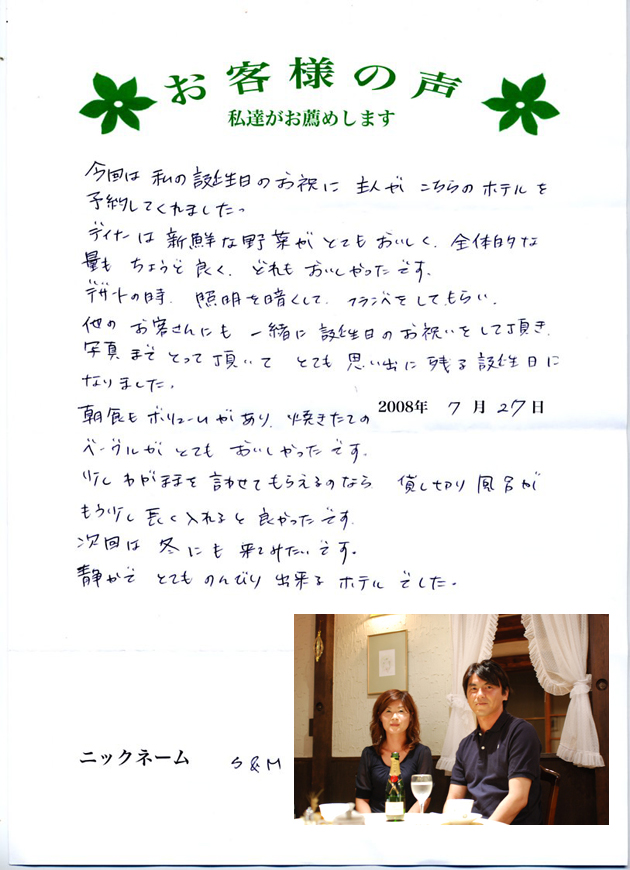 お客様の声
私達がお薦めします
今回は 私の誕生日のお祝に 主人が こちらのホテルを
予約してくれました。
ディナーは新鮮な野菜がとてもおいしく、全体的な
量も ちょうど良く、どれもおいしかったです。
デザートの時、照明を暗くして、フランベをしてもらい、
他の お客さんにも 一緒に 誕生日のお祝いをして頂き、
写真まで とって頂いて とても 思い出に残る誕生日に
なりました。
朝食も ボリュームがあり、焼きたての
2008年 7月27日
ベーグルが とても おいしかったです。
少し わがままを 言わせてもらえるのなら 貸し切り風呂が
もう少し 長く入れると 良かったです。
次回は 冬にも 来てみたいです。
静かで とても のんびり 出来る ホテル でした。
ニックネーム S&M